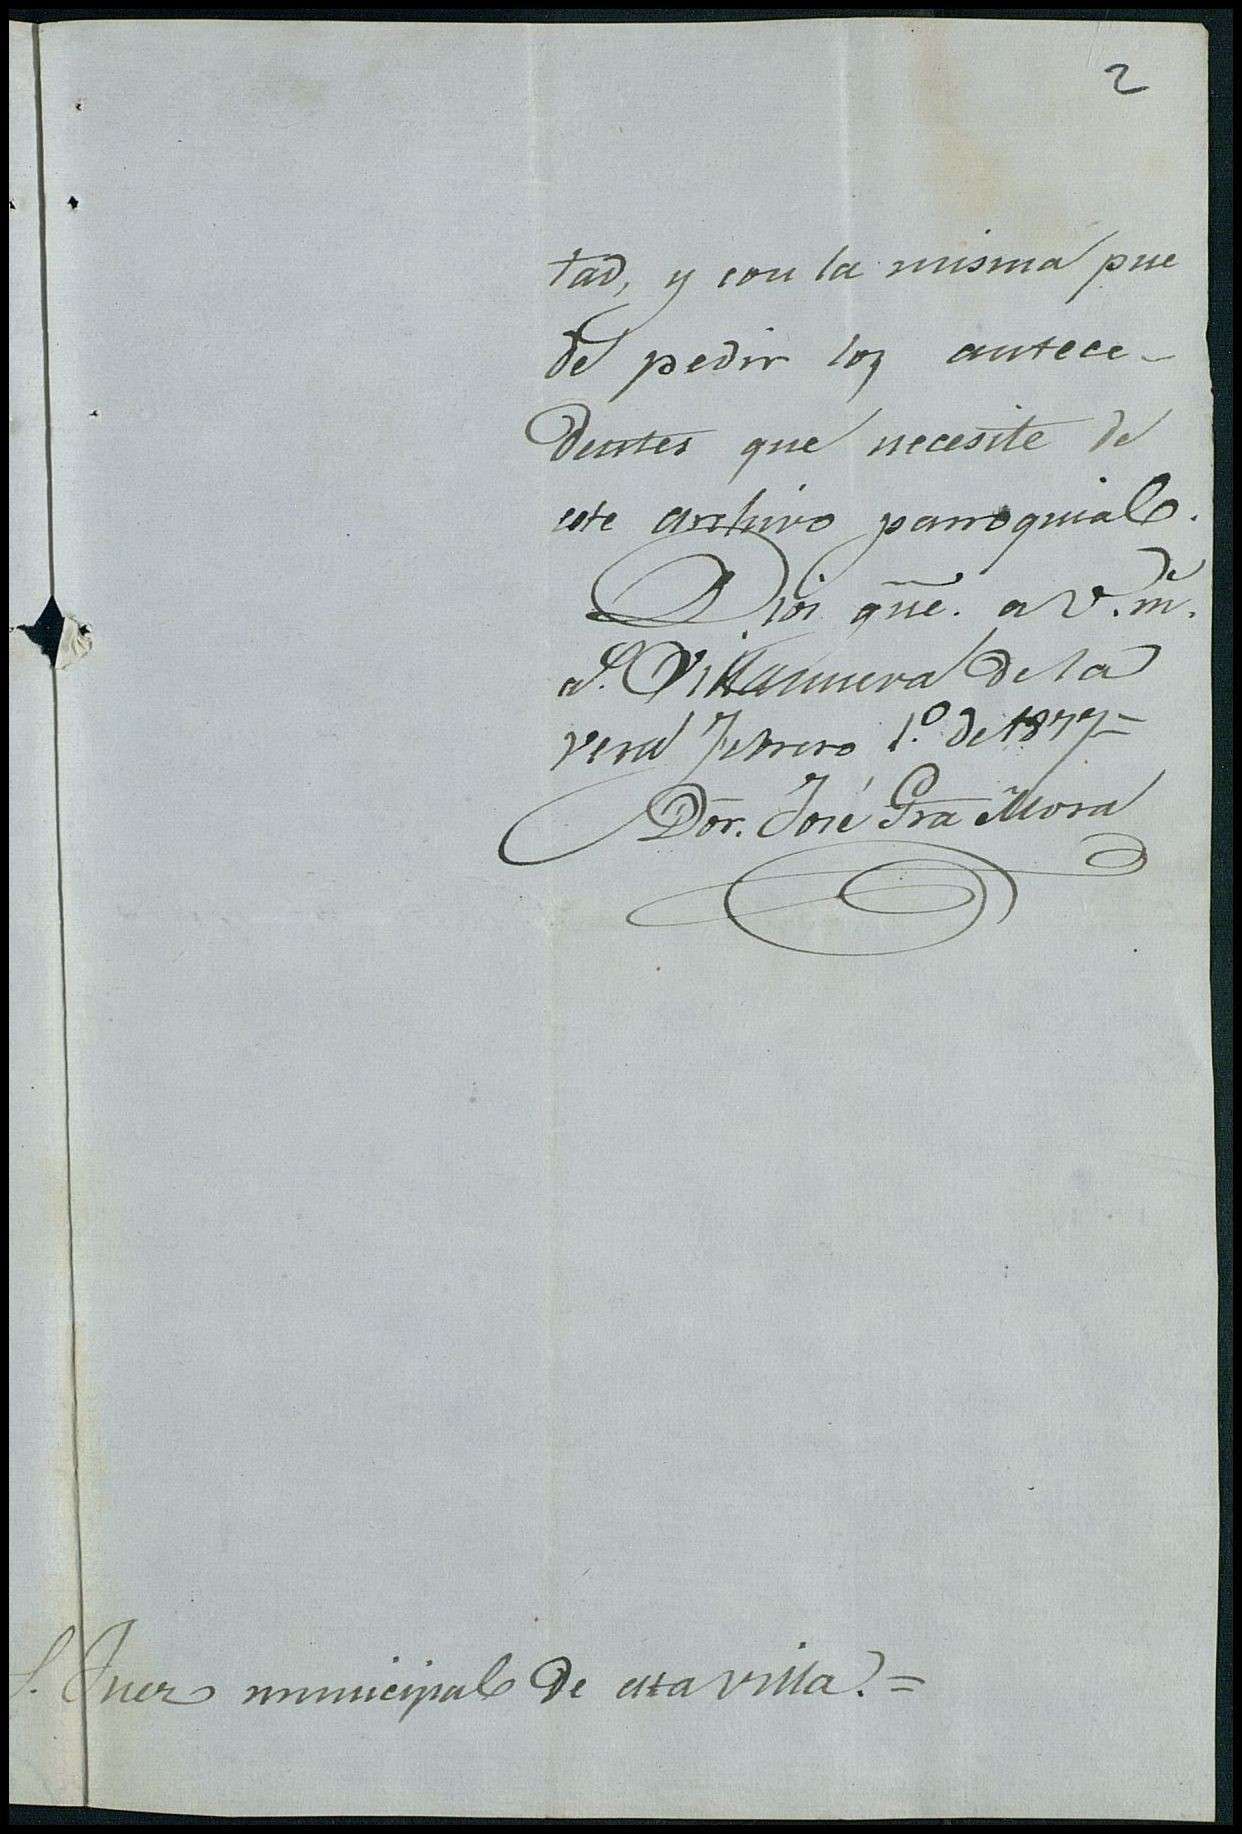 2
tad, y con la misma pue
de pedir los antece-
dentes que necesite de
este archivo parroquial.
Dios gũe. a V. m. 
a.s Villanueva de la
Vera Febrero 1.º de 1877=
Dor. José Gra Mora
S. Juez municipal de esta villa.=